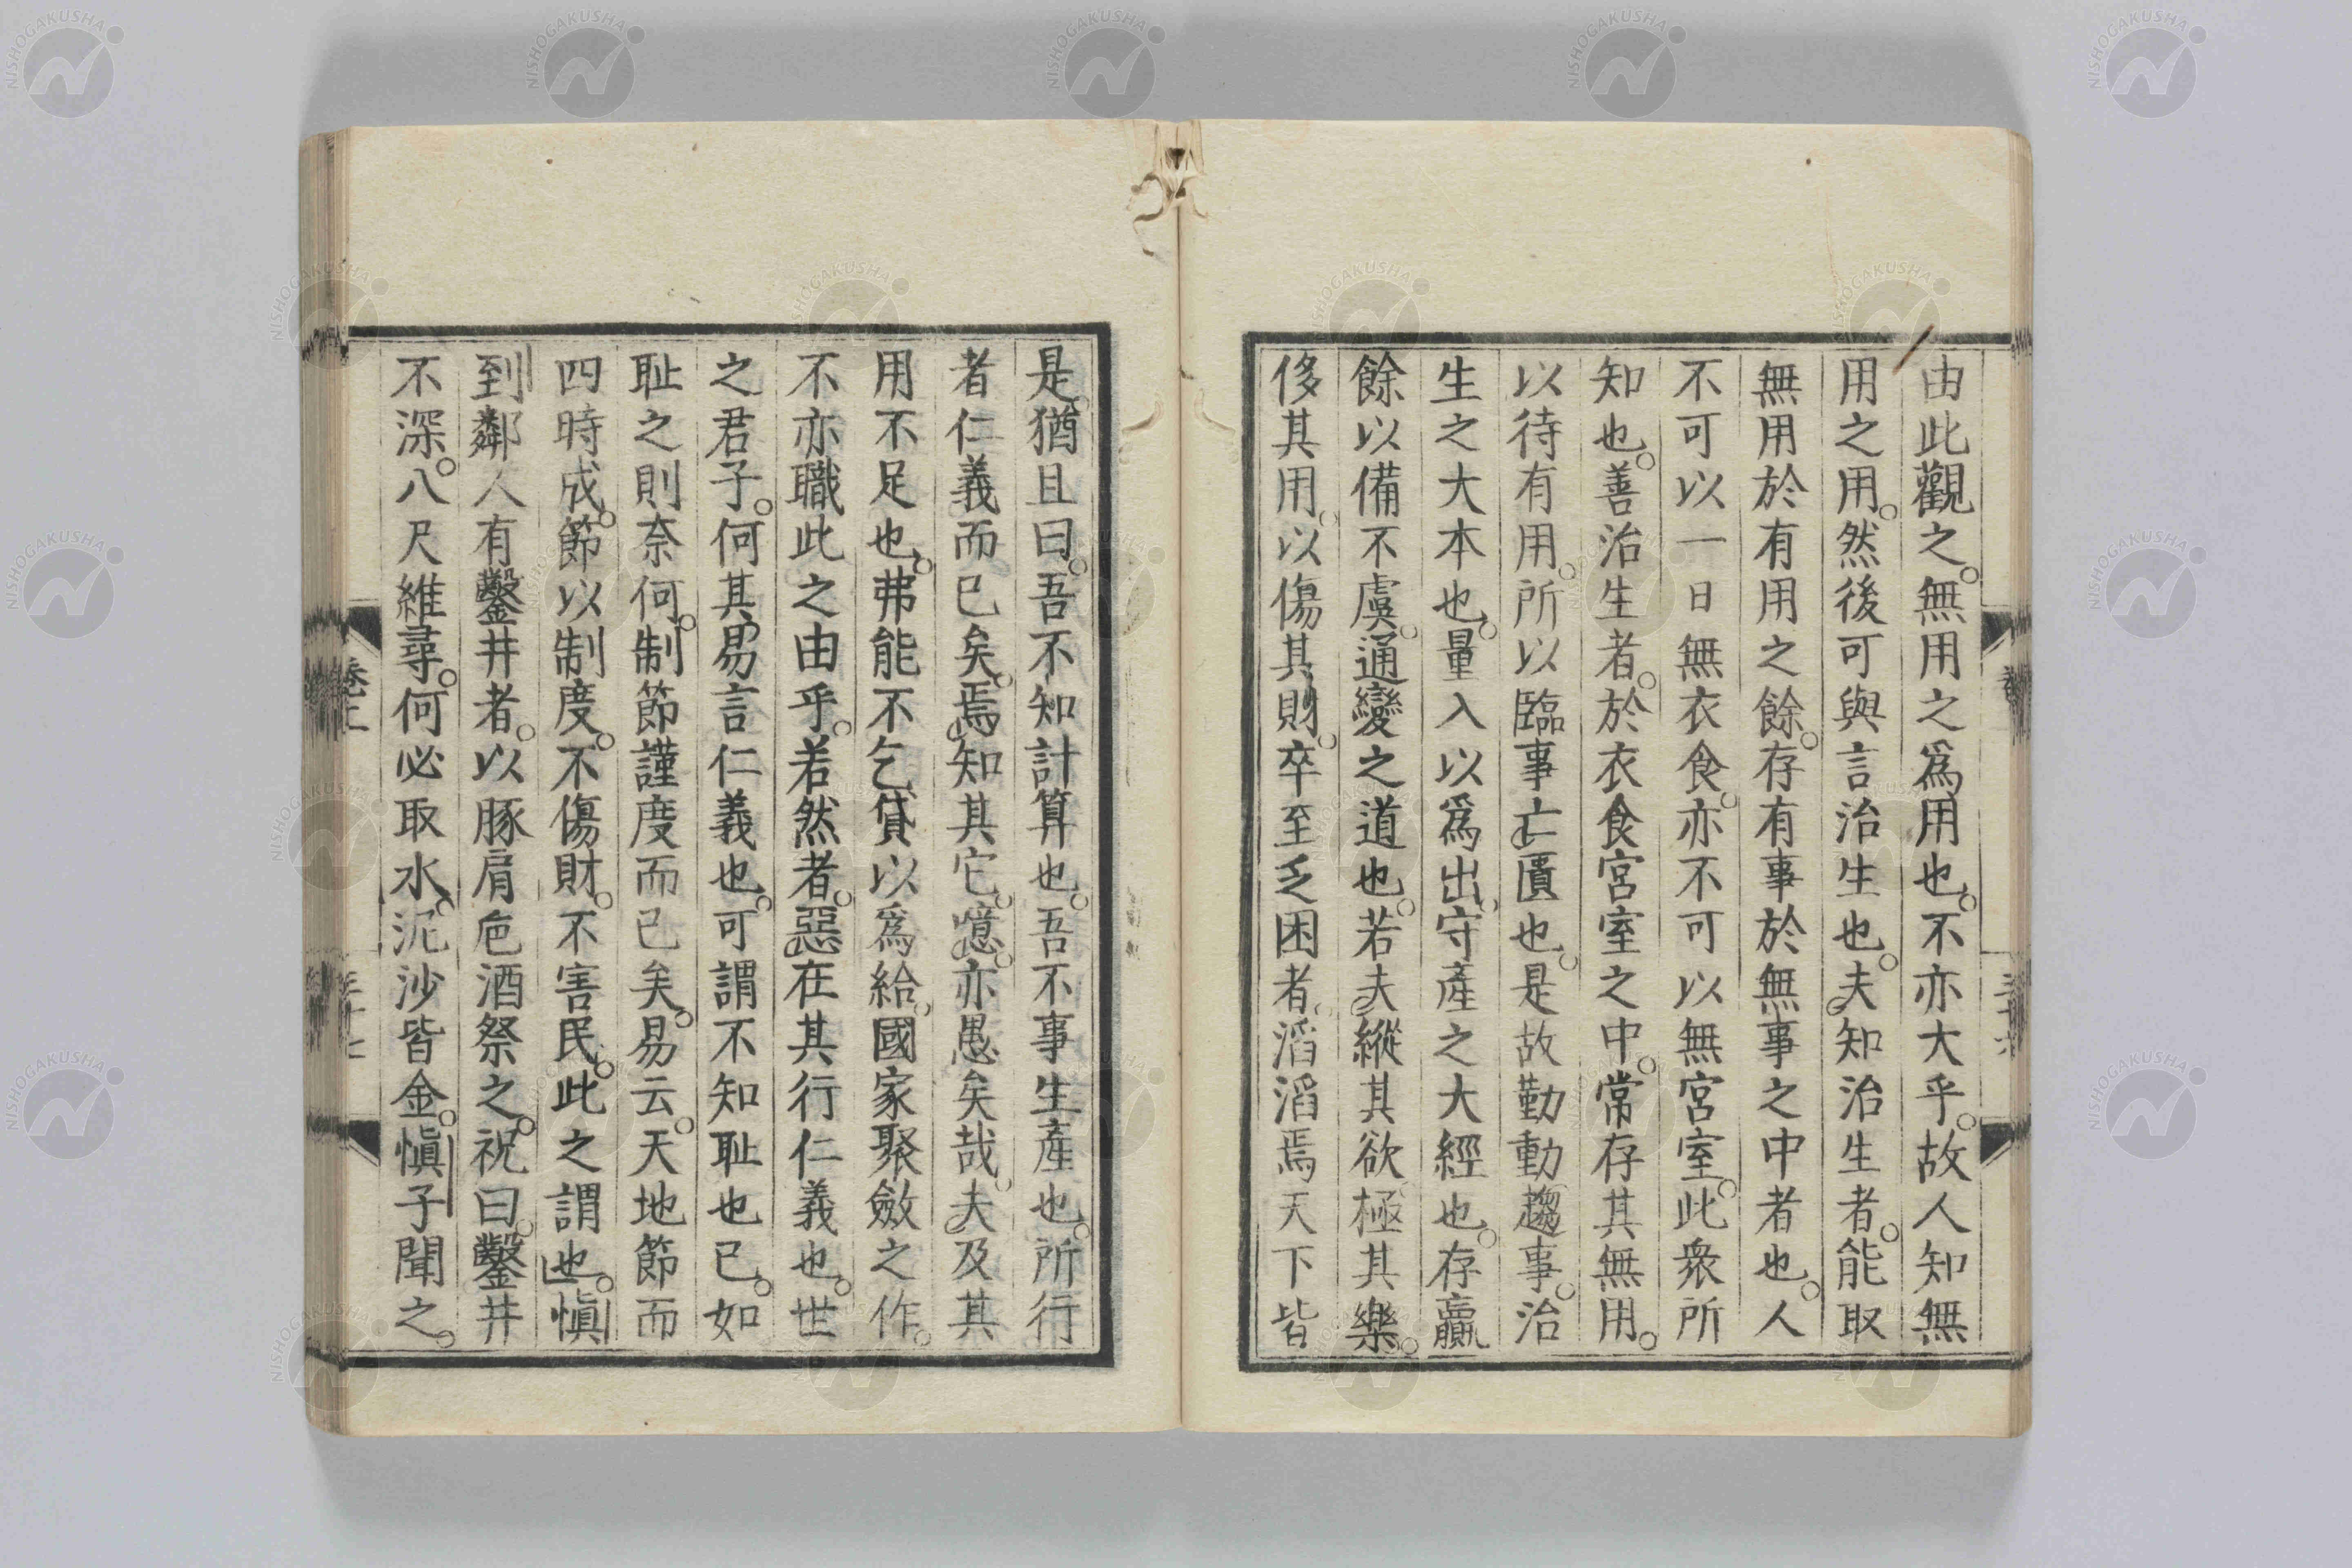 由此觀之。無用之爲用也。不亦大乎。故人知無
用之用。然後可與言治生也。夫知治生者。能取
無用於有用之餘。存有事於無事之中者也。人
不可以一日無衣食。亦不可以無宮室。此衆所
知也。善治生者。於衣食宮室之中。常存其無用。
以待有用。所以臨事亡匱也。是故勤動趨事。治
生之大本也。量入以爲出。守產之大經也。存贏
餘以備不虞。通變之道也。若夫縱其欲極其樂。
侈其用。以傷其財。卒至乏困者。滔滔焉天下皆
是。猶且曰。吾不知計算也。吾不事生產也。所行
者仁義而已矣。焉知其它。噫。亦愚矣哉。夫及其
用不足也。弗能不乞貸以爲給。國家聚斂之作。
不亦職此之由乎。若然者。惡在其行仁義也。世
之君子。何其易言仁義也。可謂不知恥也已。如
恥之則奈何。制節謹度而已矣。易云。天地節而
四時成。節以制度。不傷財。不害民。此之謂也。愼
到鄰人有鑿井者。以豚肩卮酒祭之。祝曰。鑿井
不深。八尺維尋。何必取水。泥沙皆金。愼子聞之。
卷上
三十七
NISHOGAKUSHA